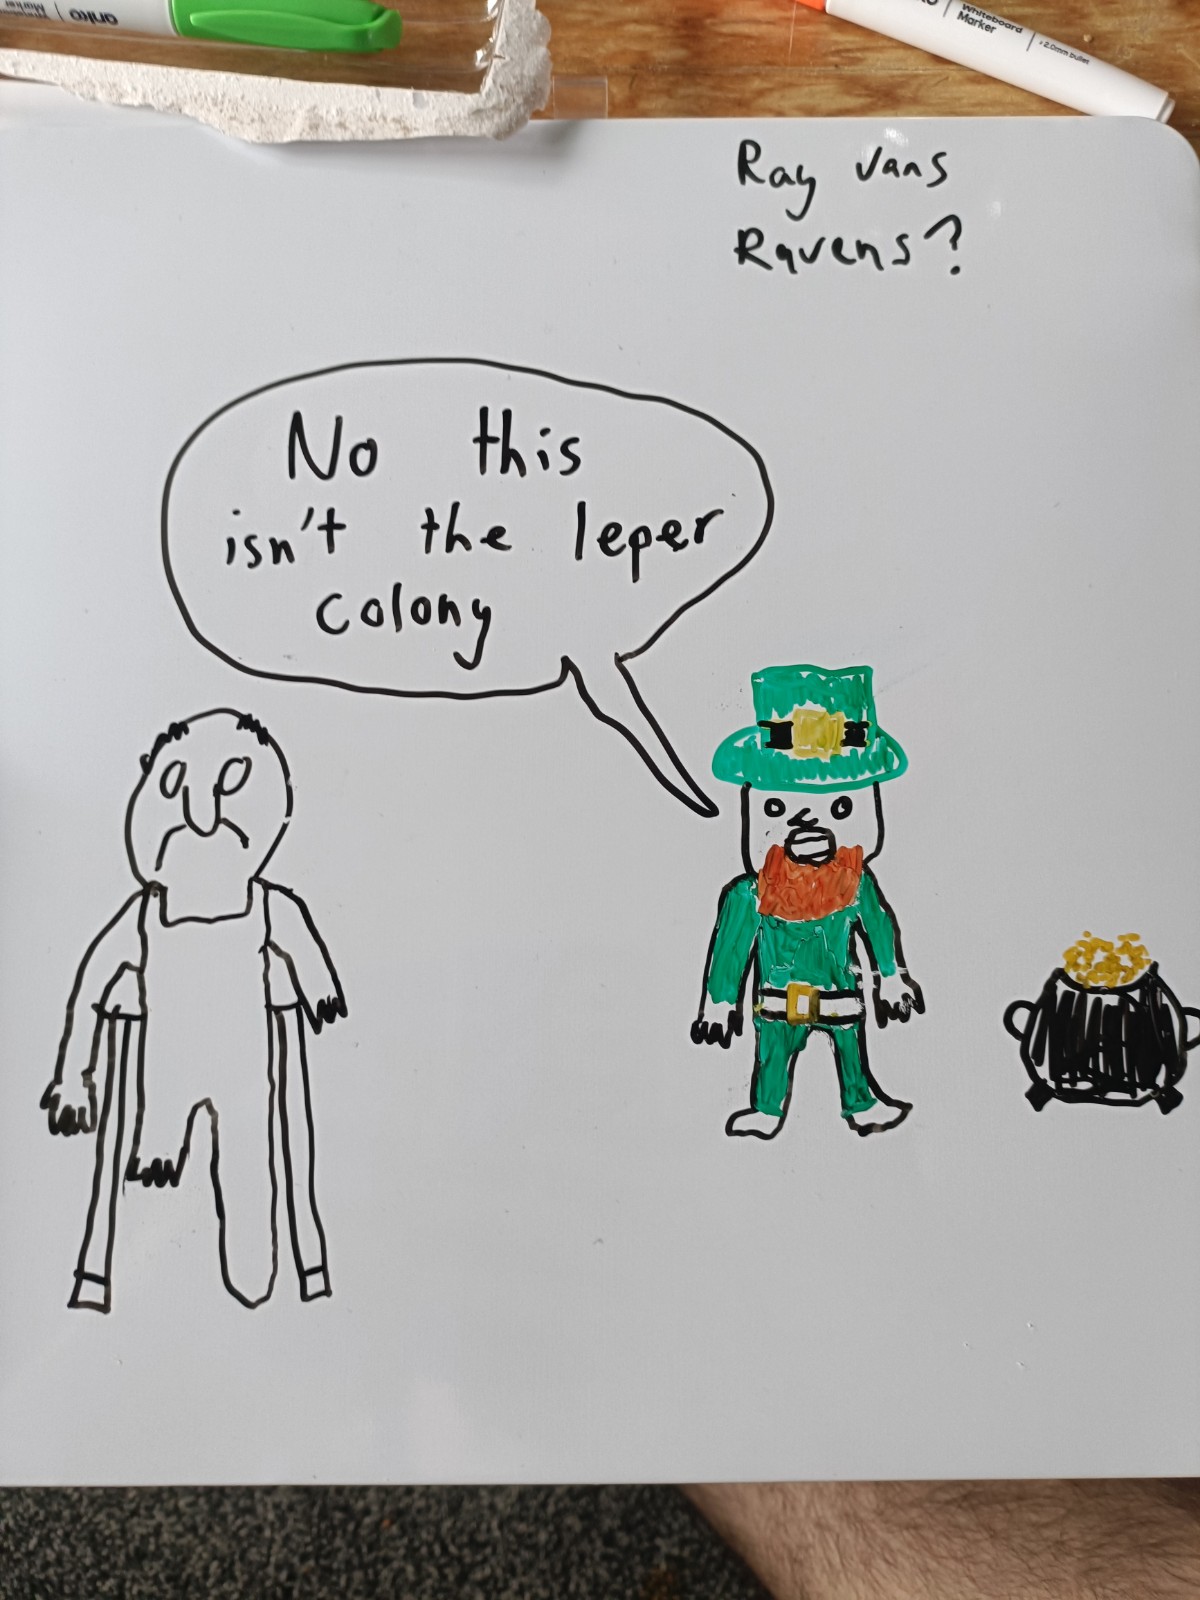 anko
Marker
Whiteboard
Marker
2.0mm bullet
Ray vans
Ravens?
No this
isn't the leper
colony